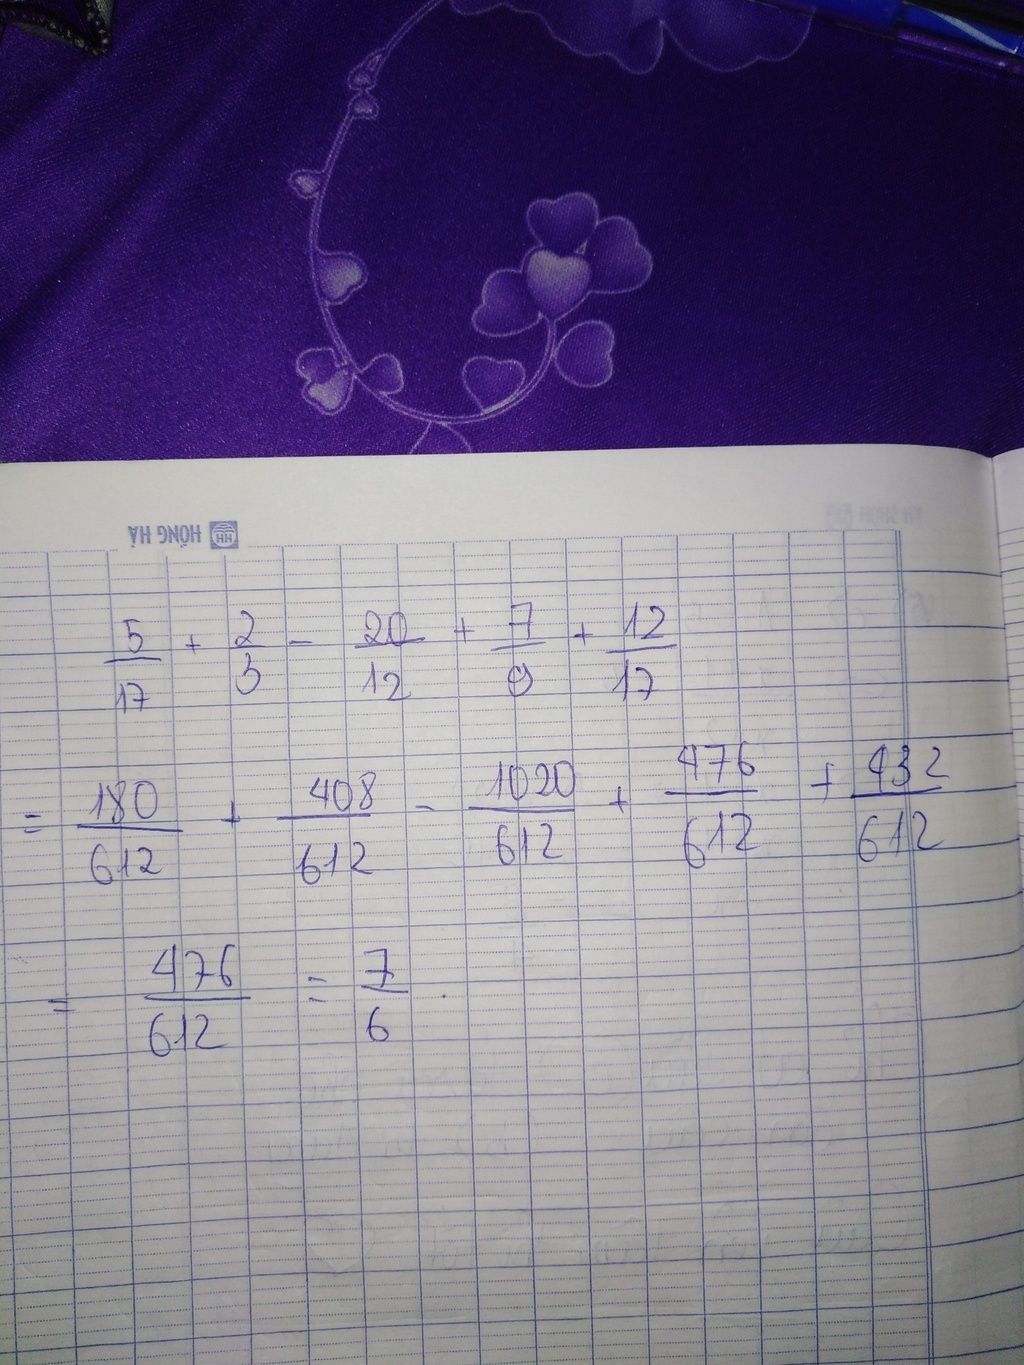 HỒNG HÀ
5/17 + 2/3 - 20/12 + 7/9 + 12/17
= 180/612 + 408/612 - 1020/612 + 476/612 + 432/612
= 476/612 = 7/6.